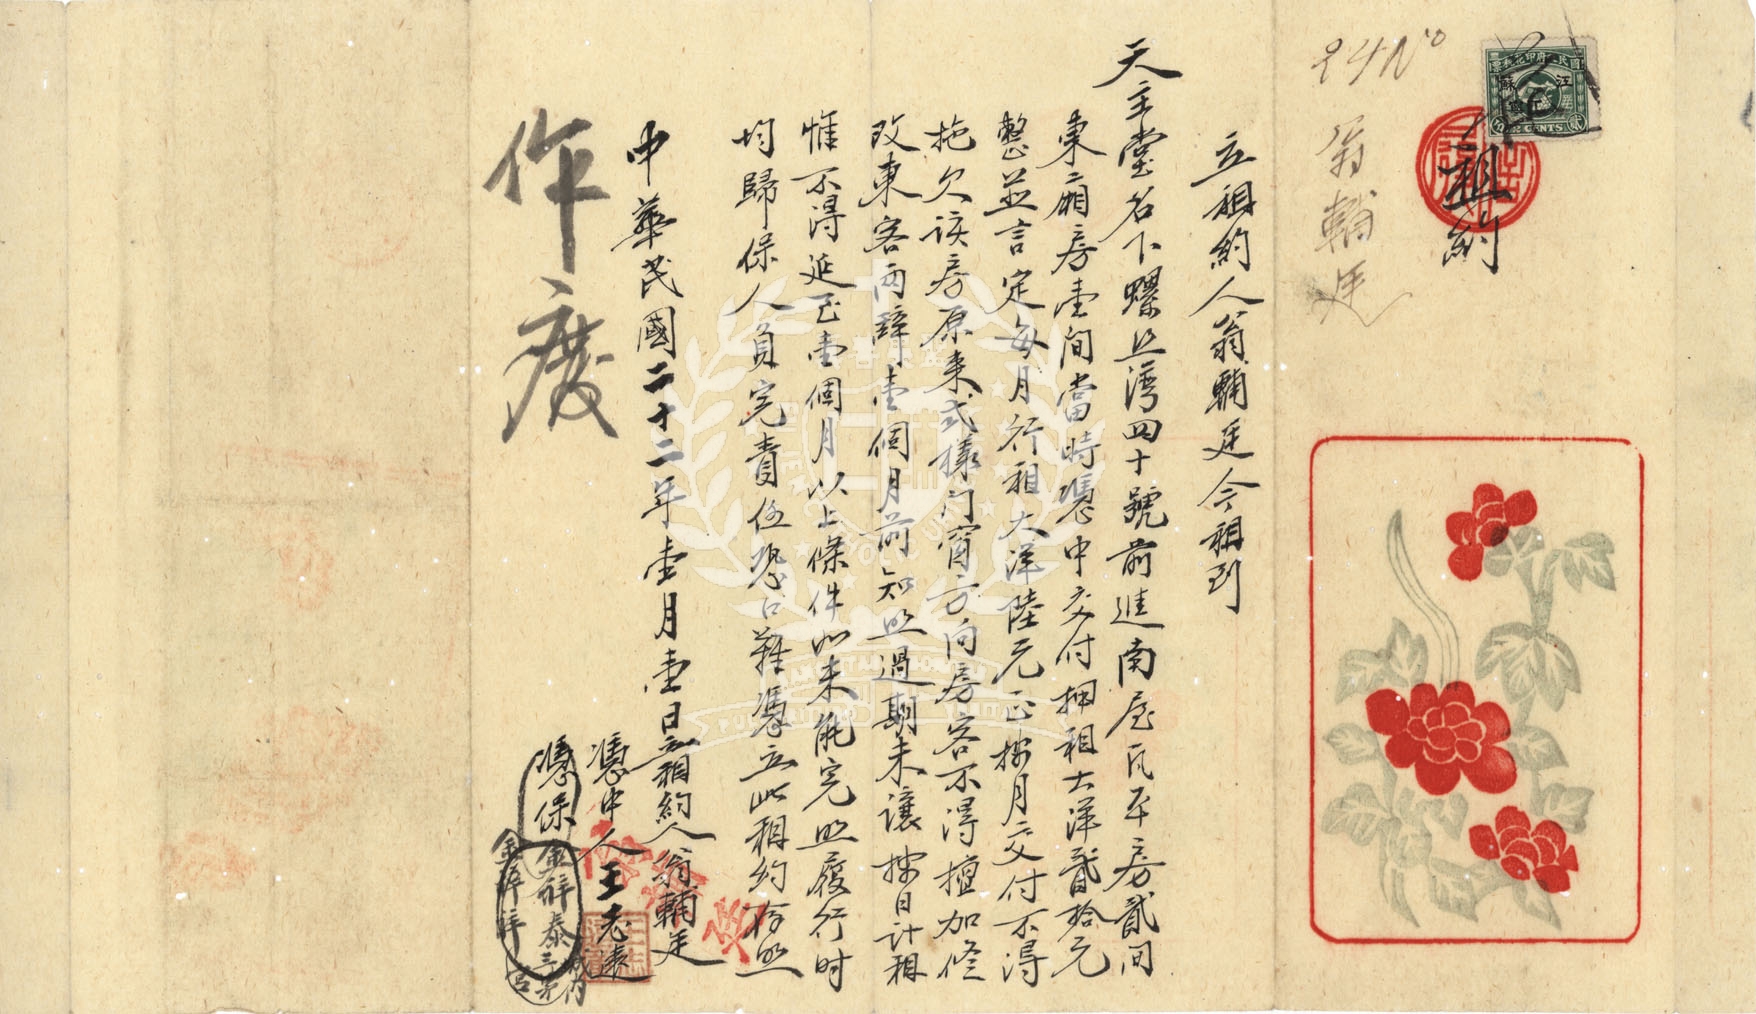 24 No
翁輔廷
國民政府印花稅票
江蘇
貳分
CENTS
租約
立租約人翁輔廷今租到
天主堂名下螺丝灣四十號前進南屋瓦平房貳間
東廂房壹間當時憑中交付押租大洋貳拾元
整並言定每月行租大洋陸元正按月交付不得
拖欠该房原來式樣门窗方向房客不得擅加修
改東客两辞壹個月前知照過期未讓按日计租
惟不得延至壹個月以上條件如未能完照履行时
均歸保人負完責任恐口難憑立此租約存照
中華民國二十二年壹月壹日立租約人翁輔廷
憑中人王老遠
憑保金祥泰
城内三茅宫
作廢